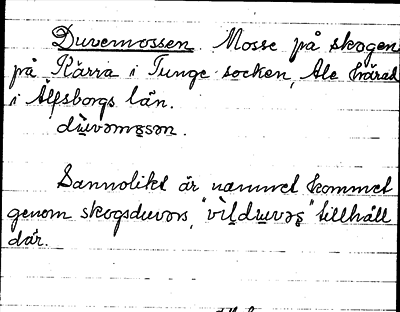 Duvemossen. Mosse på skogen
på Kärra i Tunge socken, Ale härad
i Älfsborgs län.
dùvəmɷsən.
Sannolikt är namnet kommet
genom skogsduvors, "vìlduvəs" tillhåll
där.